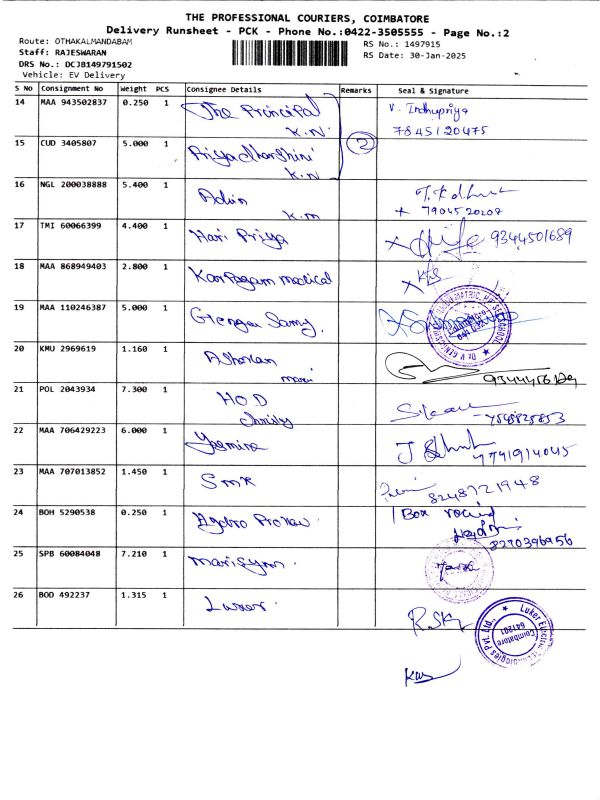 THE PROFESSIONAL COURIERS, COIMBATORE
Delivery Runsheet - PCK - Phone No.:0422-3505555 - Page No.:2
Route: OTHAKALMANDABAM
RS No.: 1497915
Staff: RAJESWARAN
RS Date: 30-Jan-2025
DRS No.: DCJB149791502
Vehicle: EV Delivery
S No Consignment No Weight PCS Consignee Details Remarks Seal & Signature
14 MAA 943502837 0.250 1 The Principal V. Indhupriya
K.N 7845120475
15 CUD 3405807 5.000 1 Priyadharshini 2
K.N
16 NGL 200038888 5.400 1
K.M 7904520207
17 TMI 60066399 4.400 1 Hari Priya 9344501689
18 MAA 868949403 2.800 1 Karpagam medical
19 MAA 110246387 5.000 1 Samy.
20 KMU 2969619 1.160 1
21 POL 2043934 7.300 1 H.O.D
22 MAA 706429223 6.000 1 Yasmine
23 MAA 707013852 1.450 1 SMR
8248721948
24 BOH 5290538 0.250 1 1 Box
8270396956
25 SPB 60084048 7.210 1
26 BOD 492237 1.315 1 R.SK
Luker Electric Technologies Pvt. Ltd.,
Coimbatore
641201